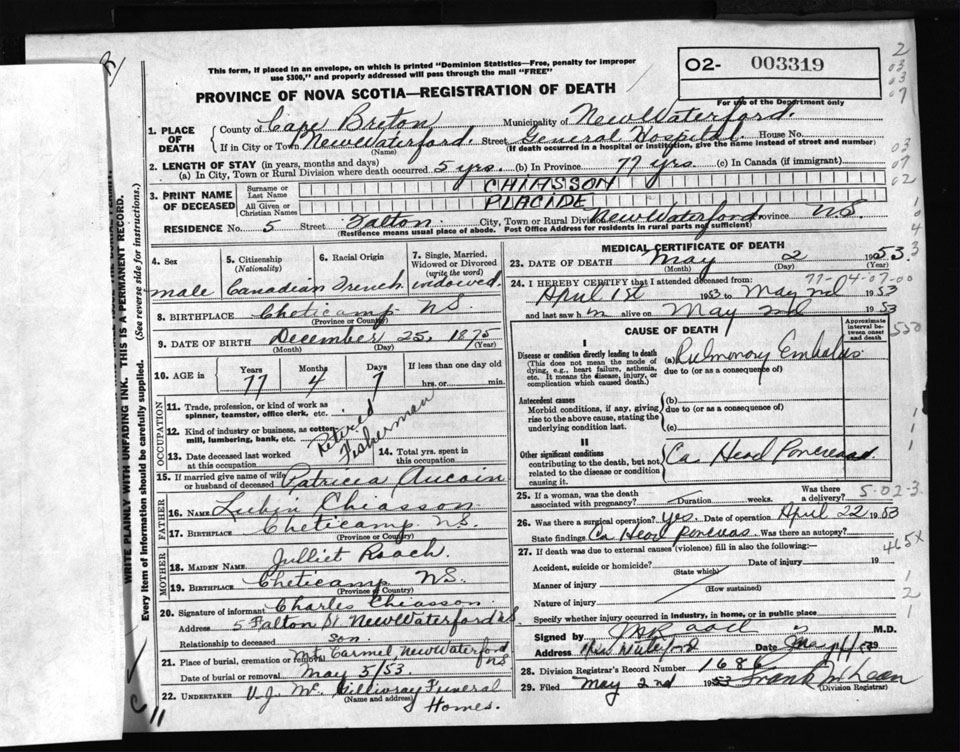 This form, if placed in an envelope, on which is printed "Dominion Statistics—Free, penalty for improper
use $300," and properly addressed will pass through the mail "FREE"
O2- 003319
For use of the Department only
PROVINCE OF NOVA SCOTIA—REGISTRATION OF DEATH
1. PLACE OF DEATH
County of Cape Breton Municipality of New Waterford.
If in City or Town New Waterford. Street General Hospital. House No.
(Name) (If death occurred in a hospital or institution, give the name instead of street and number)
2. LENGTH OF STAY (in years, months and days)
(a) In City, Town or Rural Division where death occurred 5 yrs. (b) In Province 77 yrs. (c) In Canada (if immigrant)
3. PRINT NAME OF DECEASED
Surname or Last Name CHIASSON
All Given or Christian Names PLACIDE
RESIDENCE No. 5 Street Falton City, Town or Rural Division New Waterford Province N.S.
(Residence means usual place of abode. Post Office Address for residents in rural parts not sufficient)
4. Sex
male
5. Citizenship (Nationality)
Canadian
6. Racial Origin
French
7. Single, Married, Widowed or Divorced (write the word)
widowed
8. BIRTHPLACE Cheticamp N.S.
(Province or Country)
9. DATE OF BIRTH December 25, 1875
(Month) (Day) (Year)
10. AGE in Years Months Days If less than one day old
77 4 7 hrs. or min.
OCCUPATION
11. Trade, profession, or kind of work as spinner, teamster, office clerk, etc.
12. Kind of industry or business, as cotton-mill, lumbering, bank, etc.
Retired Fisherman
13. Date deceased last worked at this occupation
14. Total yrs. spent in this occupation
15. If married give name of wife or husband of deceased Patricia Aucoin
FATHER
16. NAME Lubin Chiasson
17. BIRTHPLACE Cheticamp N.S.
(Province or Country)
MOTHER
18. MAIDEN NAME Julliet Roach.
19. BIRTHPLACE Cheticamp N.S.
(Province or Country)
20. Signature of informant Charles Chiasson
Address 5 Falton St. New Waterford N.S.
Relationship to deceased son.
21. Place of burial, cremation or removal Mt. Carmel, New Waterford NS
Date of burial or removal May 5/53
22. UNDERTAKER V.J. Mc. Gillivray Funeral Homes.
(Name and address)
MEDICAL CERTIFICATE OF DEATH
23. DATE OF DEATH May 2 1953
(Month) (Day) (Year)
77-04-07-00
24. I HEREBY CERTIFY that I attended deceased from:
April 1st 1953 to May 2nd 1953
and last saw h m alive on May 2nd 1953
CAUSE OF DEATH
Approximate interval between onset and death
I
Disease or condition directly leading to death
(This does not mean the mode of dying, e.g., heart failure, asthenia, etc. It means the disease, injury, or complication which caused death.)
(a) Pulmonory Embolus
due to (or as a consequence of)
Antecedent causes
Morbid conditions, if any, giving rise to the above cause, stating the underlying condition last.
(b)
due to (or as a consequence of)
(c)
II
Other significant conditions
contributing to the death, but not related to the disease or condition causing it.
Ca Head Poncreas
25. If a woman, was the death associated with pregnancy? Duration weeks. Was there a delivery?
5-02-3
26. Was there a surgical operation? Yes. Date of operation April 22 1953
State findings Ca Head Poncreas. Was there an autopsy?
27. If death was due to external causes (violence) fill in also the following:—
465X
Accident, suicide or homicide? Date of injury 19
(State which)
Manner of injury
(How sustained)
Nature of injury
Specify whether injury occurred in industry, in home, or in public place
Signed by M.D.
Address Date
28. Division Registrar's Record Number 1686
29. Filed May 2nd 1953 Frank McLean
(Division Registrar)
WRITE PLAINLY WITH UNFADING INK. THIS IS A PERMANENT RECORD.
Every Item of Information should be carefully supplied. (See reverse side for instructions.)